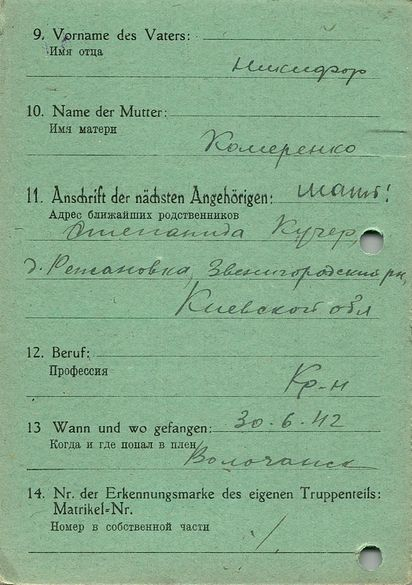 9. Vorname des Vaters:
Имя отца
Никифор
10. Name der Mutter:
Имя матери
Комеренко
11. Anschrift der nächsten Angehörigen: мать!
Адрес ближайших родственников
Степанида Кучер
д. Ризановка, Звенигородский рн,
Киевской обл
12. Beruf:
Профессия
Кр-н
13 Wann und wo gefangen: 30.6.42
Когда и где попал в плен
Волочанск
14. Nr. der Erkennungsmarke des eigenen Truppenteils:
Matrikel-Nr.
Номер в собственной части